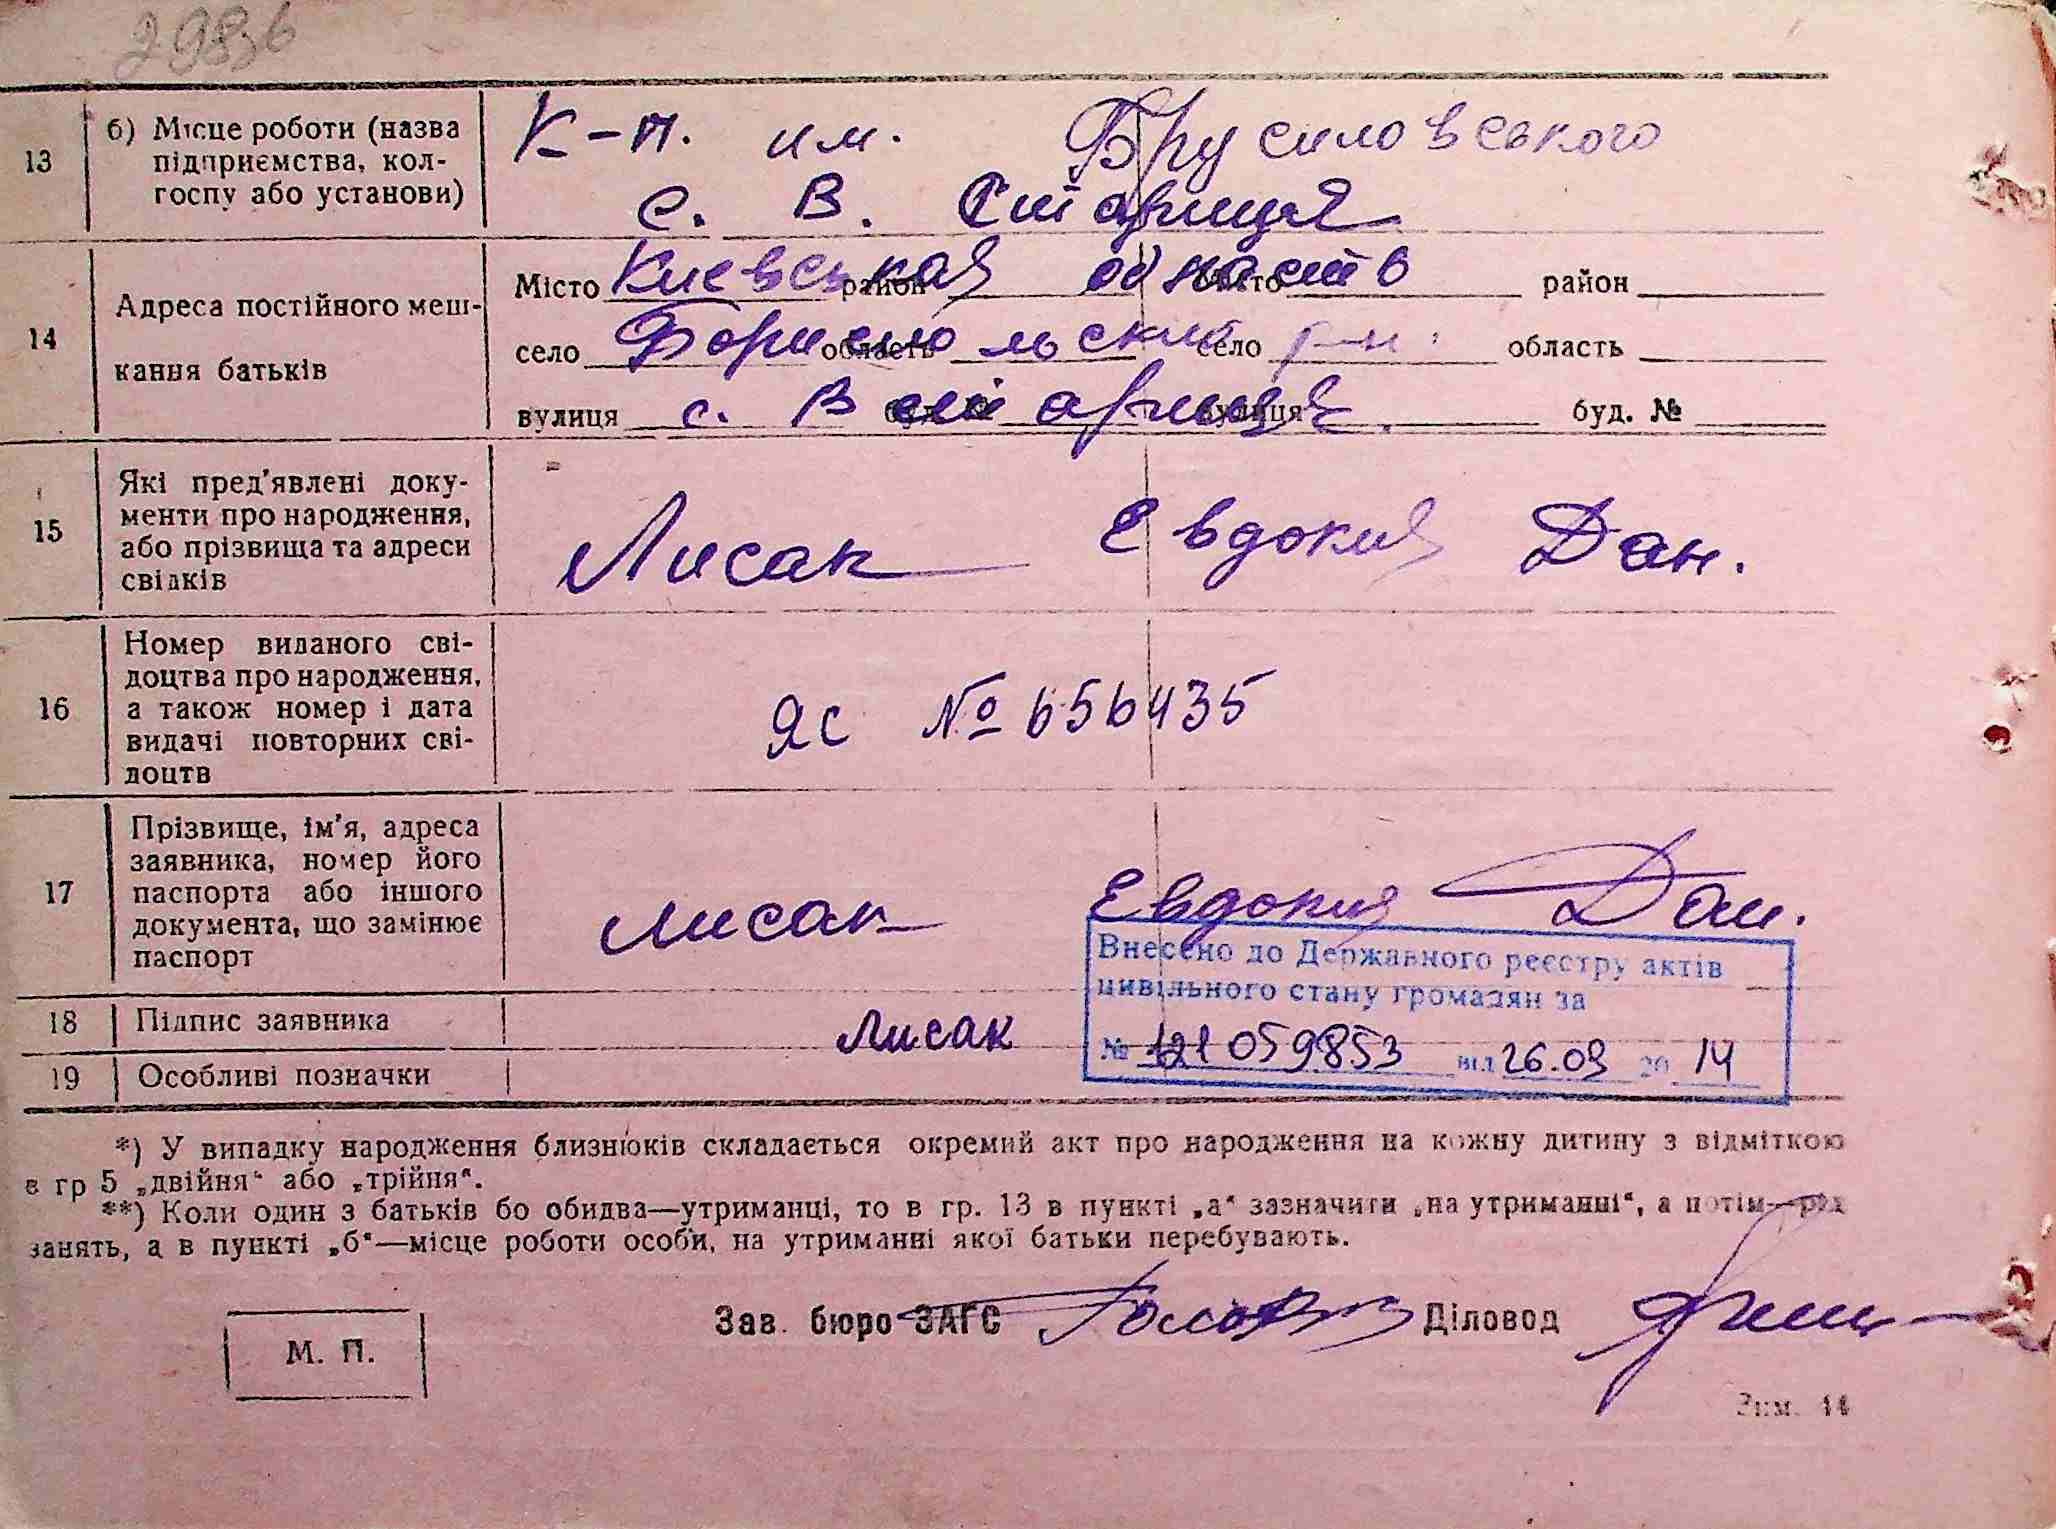 2936
13
б) Місце роботи (назва
підприємства, кол-
госпу або установи)
К-п. им. Брусиловського
с. В. Стариця
14
Адреса постійного меш-
кання батьків
Місто Киевская район область Місто район
село Бориспольский область село р-н. область
вулиця с. В Стариця буд. № вулиця буд. №
15
Які пред'явлені доку-
менти про народження,
або прізвища та адреси
свідків
Лисак Евдокия Дан.
16
Номер виданого сві-
доцтва про народження,
а також номер і дата
видачі повторних сві-
доцтв
ЯС № 656435
17
Прізвище, ім'я, адреса
заявника, номер його
паспорта або іншого
документа, що замінює
паспорт
Лисак Евдокия Дан.
Внесено до Державного реєстру актів
цивільного стану громадян за
№ 121059853 від 26.03 2014
18
Підпис заявника
Лисак
19
Особливі позначки
*) У випадку народження близнюків складається окремий акт про народження на кожну дитину з відміткою
в гр 5 „двійня“ або „трійня“.
**) Коли один з батьків бо обидва—утриманці, то в гр. 13 в пункті „а“ зазначити „на утриманні“, а потім—рід
занять, а в пункті „б“—місце роботи особи, на утриманні якої батьки перебувають.
М. П.
Зав. бюро ЗАГС
Діловод
Зам. 44